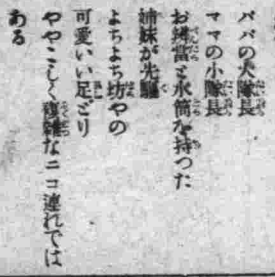 パパの大隊長
ママの小隊長
お辨當と水筒を持つた
姉妹が先驅
よちよち坊やの
可愛いい足どり
ややこしく複雑なニコ連れでは
ある